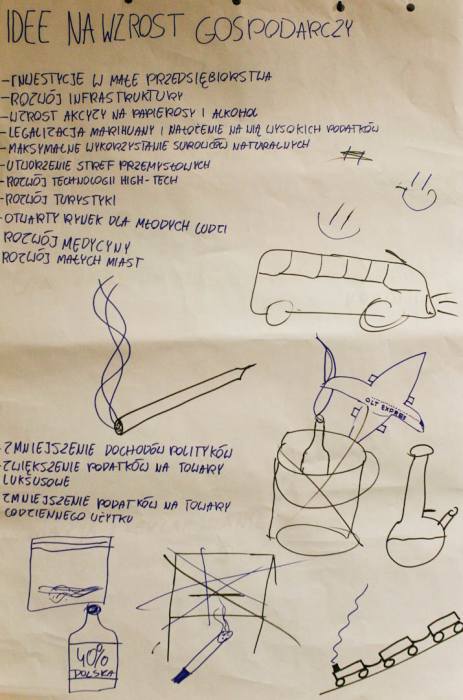 IDEE NA WZROST GOSPODARCZY
- INWESTYCJE W MAŁE PRZEDSIĘBIORSTWA
- ROZWÓJ INFRASTRUKTURY
- WZROST AKCYZY NA PAPIEROSY I ALKOHOL
- LEGALIZACJA MARIHUANY I NAŁOŻENIE NA NIĄ WYSOKICH PODATKÓW
- MAKSYMALNE WYKORZYSTANIE SUROWCÓW NATURALNYCH
- UTWORZENIE STREF PRZEMYSŁOWYCH
- ROZWÓJ TECHNOLOGII HIGH-TECH
- ROZWÓJ TURYSTYKI
- OTWARTY RYNEK DLA MŁODYCH LUDZI
ROZWÓJ MEDYCYNY
ROZWÓJ MAŁYCH MIAST
OLT EXPRESS
- ZMNIEJSZENIE DOCHODÓW POLITYKÓW
- ZWIĘKSZENIE PODATKÓW NA TOWARY
LUKSUSOWE
ZMNIEJSZENIE PODATKÓW NA TOWARY
CODZIENNEGO UŻYTKU
40%
POLSKA